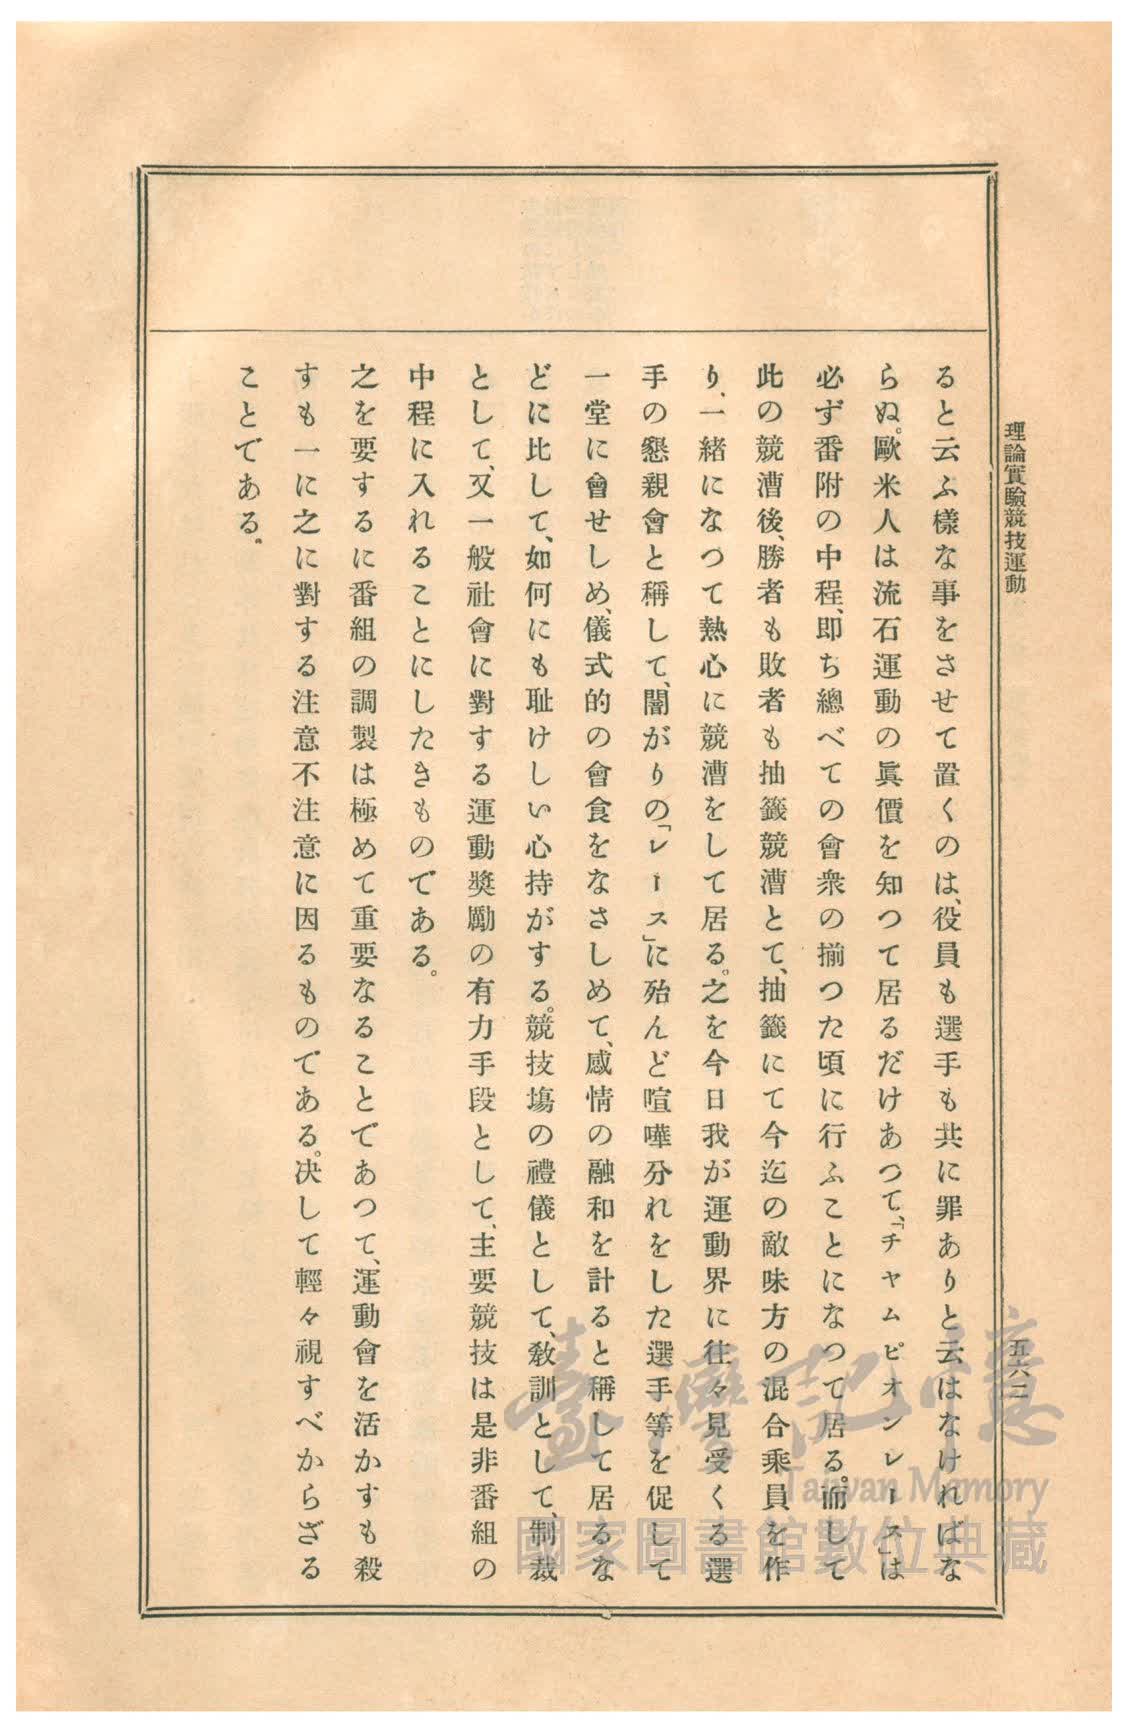 理論實驗競技運動
五六二
ると云ふ樣な事をさせて置くのは、役員も選手も共に罪ありと云はなければな
らぬ。歐米人は流石運動の眞價を知つて居るだけあつて、「チヤムピオンレース」は
必ず番附の中程、即ち總べての會衆の揃つた頃に行ふことになつて居る。而して
此の競漕後、勝者も敗者も抽籤競漕とて、抽籤にて今迄の敵味方の混合乘員を作
り、一緒になつて熱心に競漕をして居る。之を今日我が運動界に往々見受くる選
手の懇親會と稱して、闇がりの「レース」に殆んど喧嘩分れをした選手等を促して
一堂に會せしめ、儀式的の會食をなさしめて、感情の融和を計ると稱して居るな
どに比して、如何にも耻けしい心持がする。競技塲の禮儀として、敎訓として、制裁
として、又一般社會に對する運動奬勵の有力手段として、主要競技は是非番組の
中程に入れることにしたきものである。
之を要するに番組の調製は極めて重要なることであつて、運動會を活かすも殺
すも一に之に對する注意不注意に因るものである。决して輕々視すべからざる
ことである。
臺灣記憶
Taiwan Memory
國家圖書館數位典藏